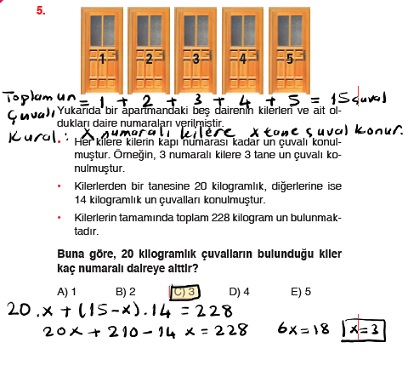 5.
1 2 3 4 5
Toplam un = 1 + 2 + 3 + 4 + 5 = 15 çuval
Çuvalı Yukarıda bir apartmandaki beş dairenin kilerleri ve ait ol-
dukları daire numaraları verilmiştir.
Kural: x numaralı kilere x tane çuval konur.
• Her kilere kilerin kapı numarası kadar un çuvalı konul-
muştur. Örneğin, 3 numaralı kilere 3 tane un çuvalı ko-
nulmuştur.
• Kilerlerden bir tanesine 20 kilogramlık, diğerlerine ise
14 kilogramlık un çuvalları konulmuştur.
• Kilerlerin tamamında toplam 228 kilogram un bulunmak-
tadır.
Buna göre, 20 kilogramlık çuvalların bulunduğu kiler
kaç numaralı daireye aittir?
A) 1 B) 2 C) 3 D) 4 E) 5
20.x + (15-x).14 = 228
20x + 210 - 14x = 228 6x = 18 x = 3